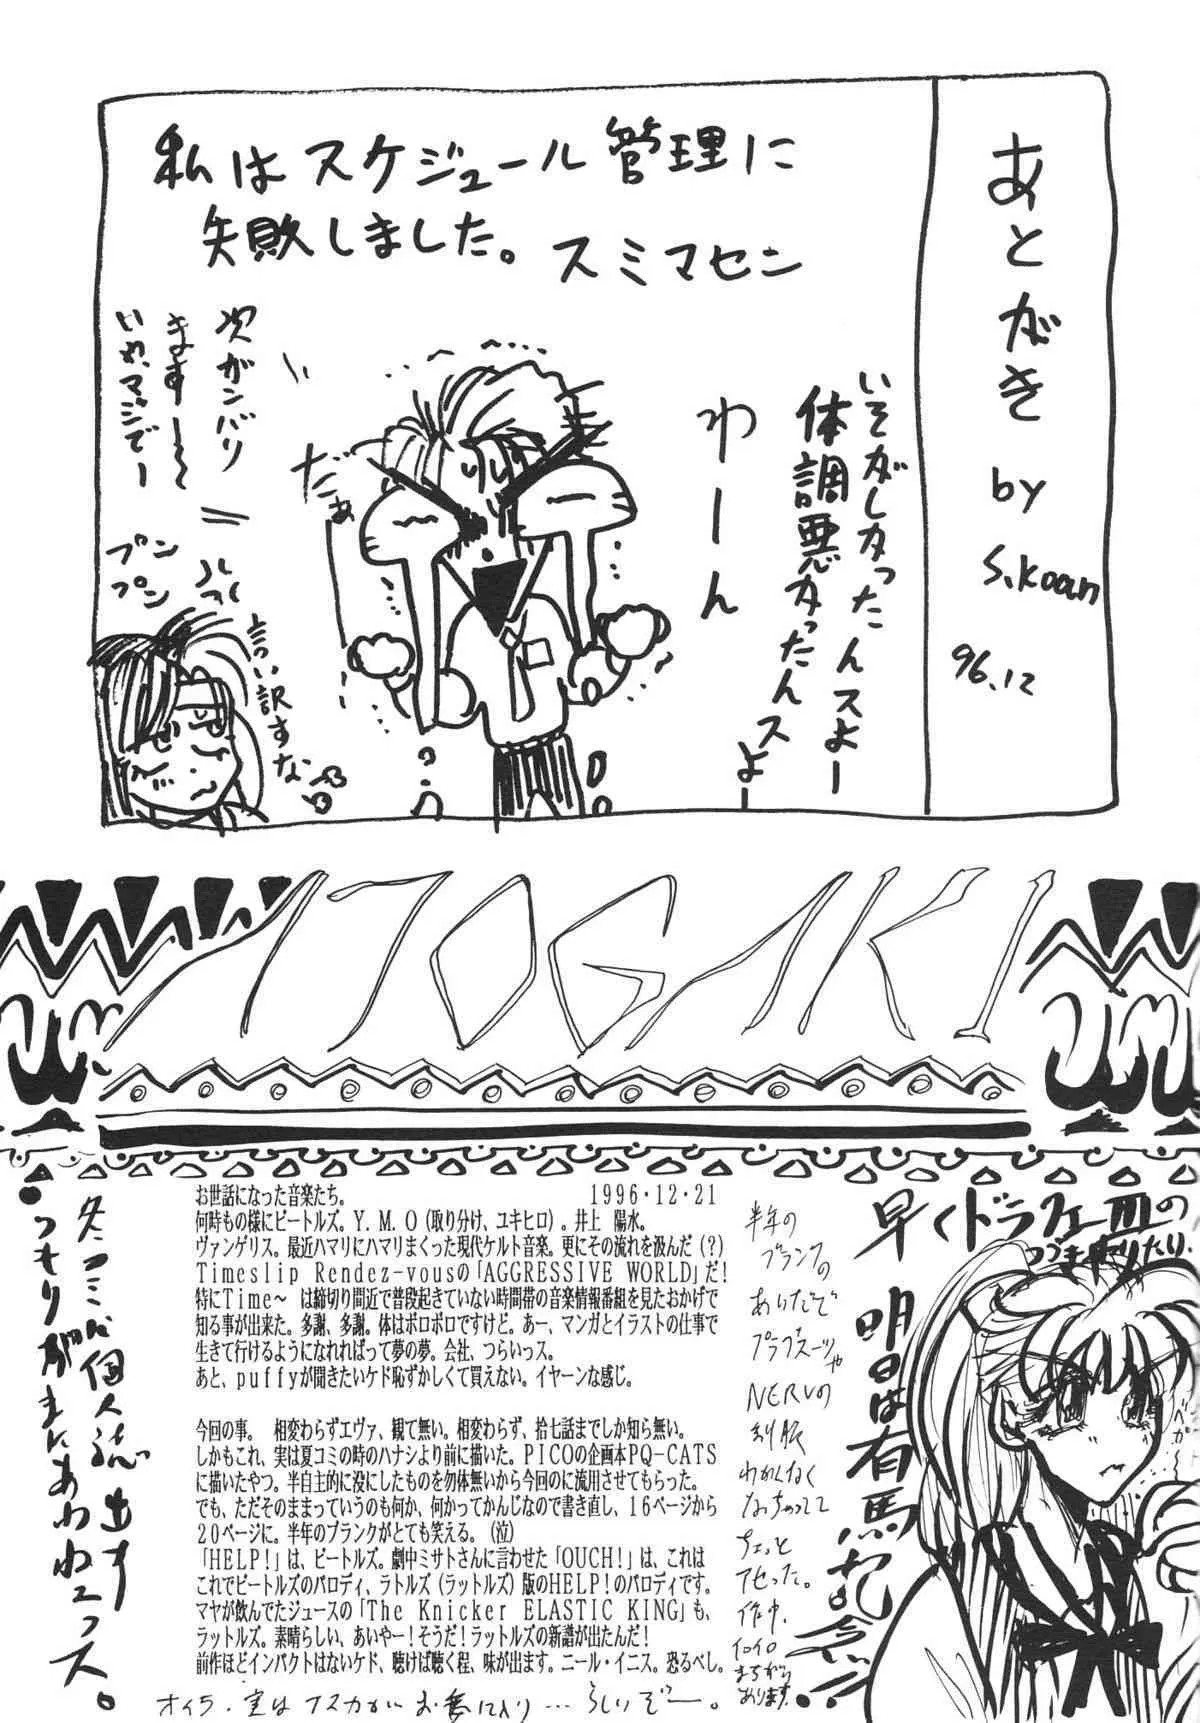 あとがき by S.Koan 96.12
私はスケジュール管理に
失敗しました。スミマセン
いそがしかったんスよー
体調悪かったんスよー
わーん
だぁー
次ガンバリ
ます〜〜
いや、マジでー
プンプン
言い訳すな
ATOGAKI
早くドラクエⅢの
つづきやりたい
明日は有馬記念!!
半年の
ブランクの
あいだで
プラグスーツや
NERVの
制服
わかんなく
なっちゃってて
ちょっと
アセった。
作中、
イロイロ
まちがい
あります。
お世話になった音楽たち。 1996・12・21
何時もの様にビートルズ。Y.M.O(取り分け、ユキヒロ)。井上 陽水。
ヴァンゲリス。最近ハマリにハマりまくった現代ケルト音楽。更にその流れを汲んだ(?)
Timeslip Rendez-vousの「AGGRESSIVE WORLD」だ!
特にTime〜 は締切り間近で普段起きていない時間帯の音楽情報番組を見たおかげで
知る事が出来た。多謝、多謝。体はボロボロですけど。あー、マンガとイラストの仕事で
生きて行けるようになれればって夢の夢。会社、つらいっス。
あと、puffyが聞きたいケド恥ずかしくて買えない。イヤーンな感じ。
今回の事。 相変わらずエヴァ、観て無い。相変わらず、拾七話までしか知ら無い。
しかもこれ、実は夏コミの時のハナシより前に描いた。PICOの企画本PQ−CATS
に描いたやつ。半自主的に没にしたものを勿体無いから今回のに流用させてもらった。
でも、ただそのままっていうのも何か、何かってかんじなので書き直し、16ページから
20ページに。半年のブランクがとても笑える。(泣)
「HELP!」は、ビートルズ。劇中ミサトさんに言わせた「OUCH!」は、これは
これでビートルズのパロディ、ラトルズ(ラットルズ)版のHELP!のパロディです。
マヤが飲んでたジュースの「The Knicker ELASTIC KING」も、
ラットルズ。素晴らしい、あいやー!そうだ!ラットルズの新譜が出たんだ!
前作ほどインパクトはないケド、聴けば聴く程、味が出ます。ニール・イニス。恐るべし。
オイラ、実はアスカがお気に入り…らしいぞー。
冬コミに個人誌出す
つもりがまにあわねェっス。